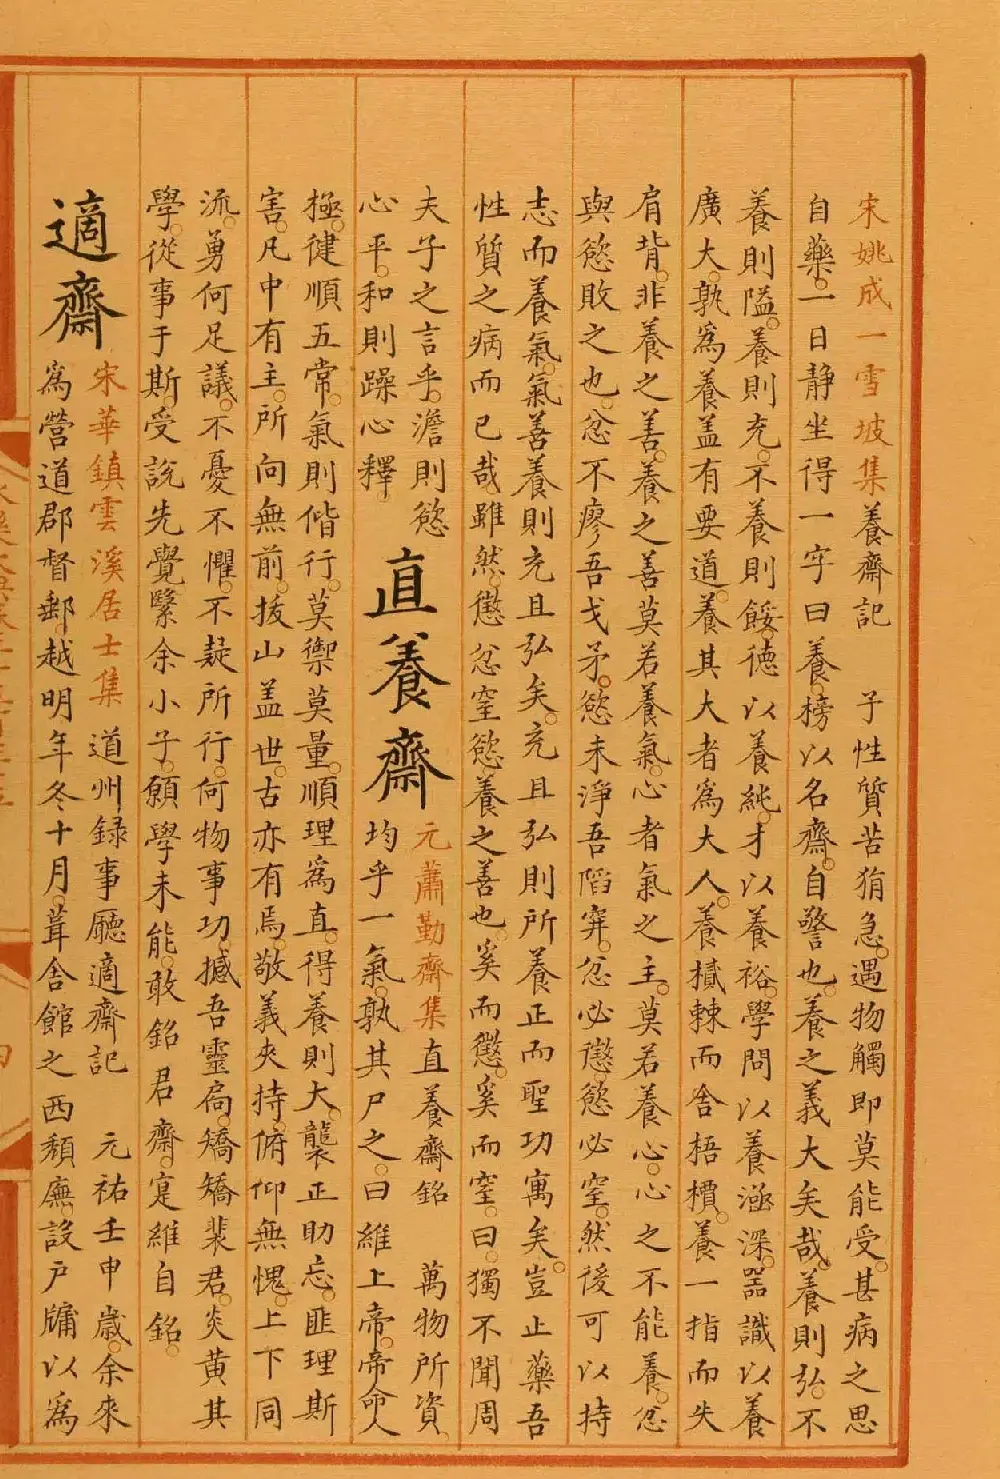 宋姚成一雪坡集養齋記　子性質苦狷急。遇物觸即莫能受。甚病之思
自藥。一日静坐得一字曰養。榜以名齋。自警也。養之義大矣哉。養則弘。不
養則隘。養則充。不養則餒。德以養純。才以養裕。學問以養涵深。器識以養
廣大。孰為養盖有要道。養其大者為大人。養樲棘而舍梧檟。養一指而失
肩背。非養之善。養之善莫若養氣。心者氣之主。莫若養心。心之不能養。忿
與慾敗之也。忿不廖吾戈矛。慾未淨吾陷穽。忿必懲慾必窒。然後可以持
志而養氣。氣善養則充且弘矣。充且弘則所養正而聖功寓矣。豈止藥吾
性質之病而已哉。雖然。懲忿窒慾養之善也。奚而懲。奚而窒。曰。獨不聞周
夫子之言乎。澹則慾
心平。和則躁心釋。
直養齋
元蕭勤齋集直養齋銘　萬物所資
均乎一氣。孰其尸之。曰維上帝。帝命人
極。健順五常。氣則偕行。莫禦莫量。順理為直。得養則大。襲正助忘。匪理斯
害。凡中有主。所向無前。拔山盖世。古亦有焉。敬義夾持。俯仰無愧。上下同
流。勇何足議。不憂不懼。不疑所行。何物事功。撼吾靈扃。矯矯裴君。炎黄其
學。從事于斯受説先覺。繄余小子。願學未能。敢銘君齋。寔維自銘。
適齋
宋華鎮雲溪居士集道州録事廳適齋記　元祐壬申歲。余來
為營道郡督郵。越明年冬十月。葺舍館之西頽廡。設户牖以為